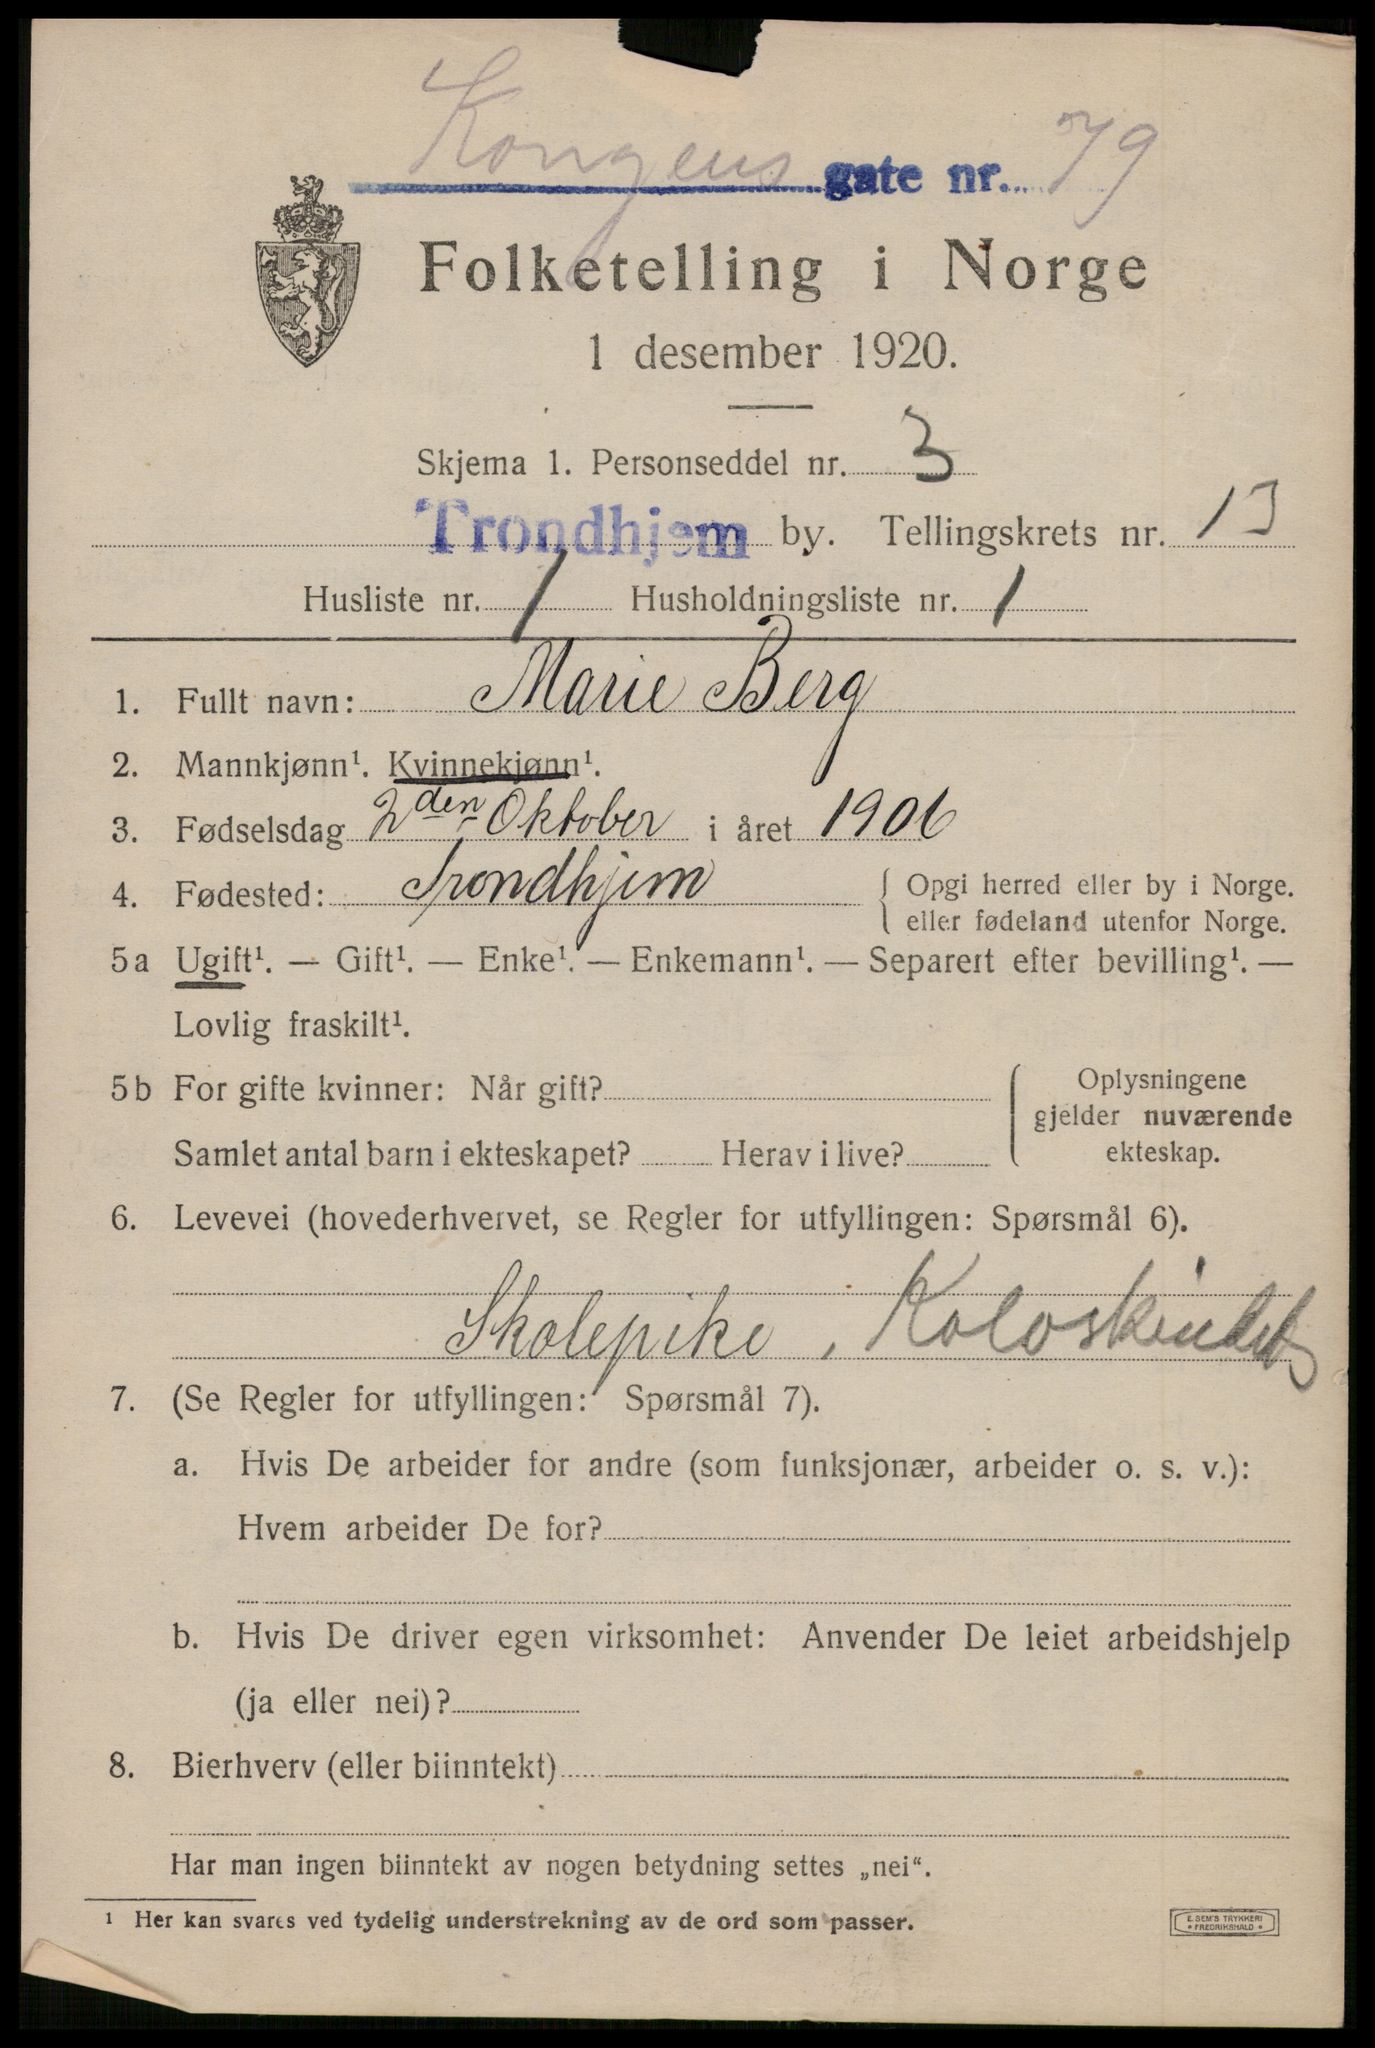 Kongens gate nr. 79
Folketelling i Norge
1 desember 1920.
Skjema 1. Personseddel nr. 3
Trondhjem by. Tellingskrets nr. 13
Husliste nr. 1 Husholdningsliste nr. 1
1. Fullt navn: Marie Berg
2. Mannkjønn¹. Kvinnekjønn¹.
3. Fødselsdag 2den Oktober i året 1906
4. Fødested: Trondhjem { Opgi herred eller by i Norge.
eller fødeland utenfor Norge.
5a Ugift¹. — Gift¹. — Enke¹. — Enkemann¹. — Separert efter bevilling¹. —
Lovlig fraskilt¹.
5b For gifte kvinner: Når gift?
Samlet antal barn i ekteskapet? Herav i live?
Oplysningene
gjelder nuværende
ekteskap.
6. Levevei (hovederhvervet, se Regler for utfyllingen: Spørsmål 6).
Skolepike,
7. (Se Regler for utfyllingen: Spørsmål 7).
a. Hvis De arbeider for andre (som funksjonær, arbeider o. s. v.):
Hvem arbeider De for?
b. Hvis De driver egen virksomhet: Anvender De leiet arbeidshjelp
(ja eller nei)?
8. Bierhverv (eller biinntekt)
Har man ingen biinntekt av nogen betydning settes „nei“.
¹ Her kan svares ved tydelig understrekning av de ord som passer.
E. SEM'S TRYKKERI
* FREDRIKSHALD *